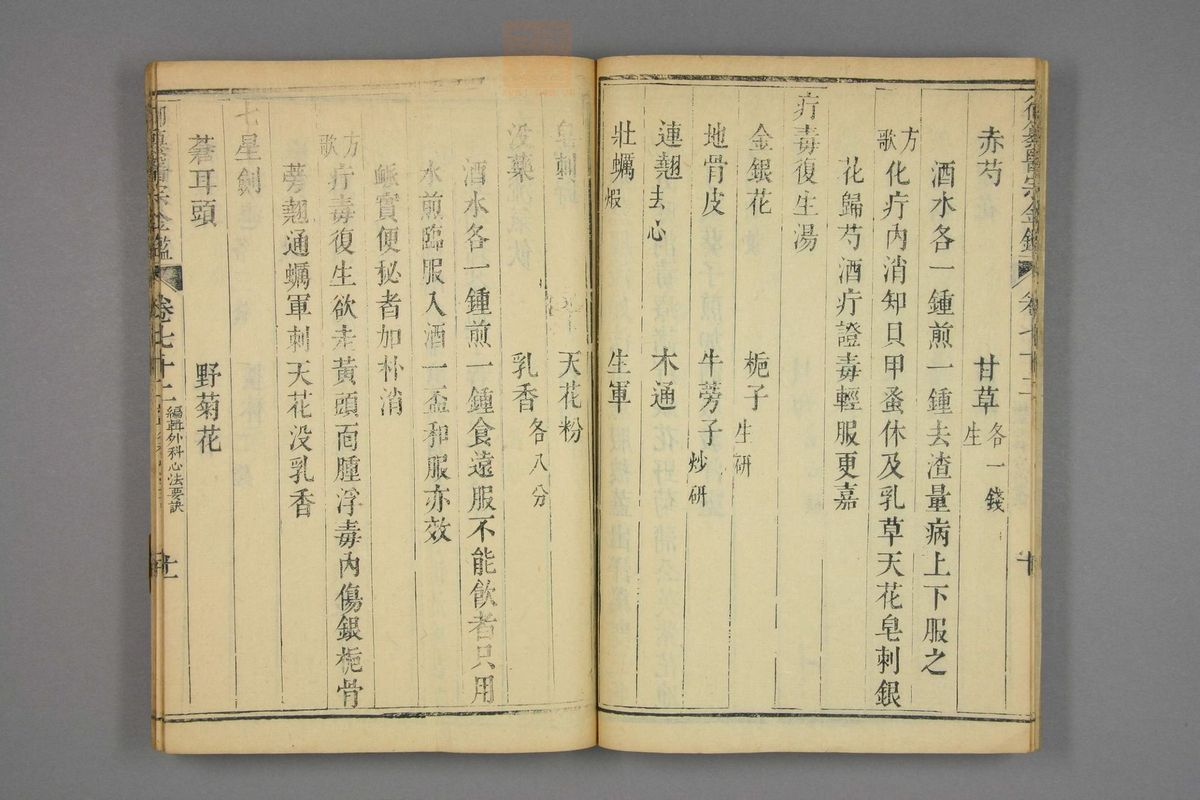 赤芍 甘草生 各一錢
酒水各一鍾煎一鍾去渣量病上下服之
方歌 化疔內消知貝甲蚤休及乳草天花皂刺銀
花歸芍酒疔證毒輕服更嘉
疔毒復生湯
金銀花 梔子生研
地骨皮 牛蒡子炒研
連翹去心 木通
牡蠣煆 生軍
皂刺 天花粉
没藥 乳香各八分
酒水各一鍾煎一鍾食遠服不能飲者只用
水煎臨服入酒一盃和服亦效
㽲實便秘者加朴消
方歌 疔毒復生欲走黃頭面腫浮毒內傷銀梔骨
蒡翹通蠣軍刺天花没乳香
七星劍
蒼耳頭 野菊花
御纂醫宗金鑑 卷七十二 編輯外科心法要訣